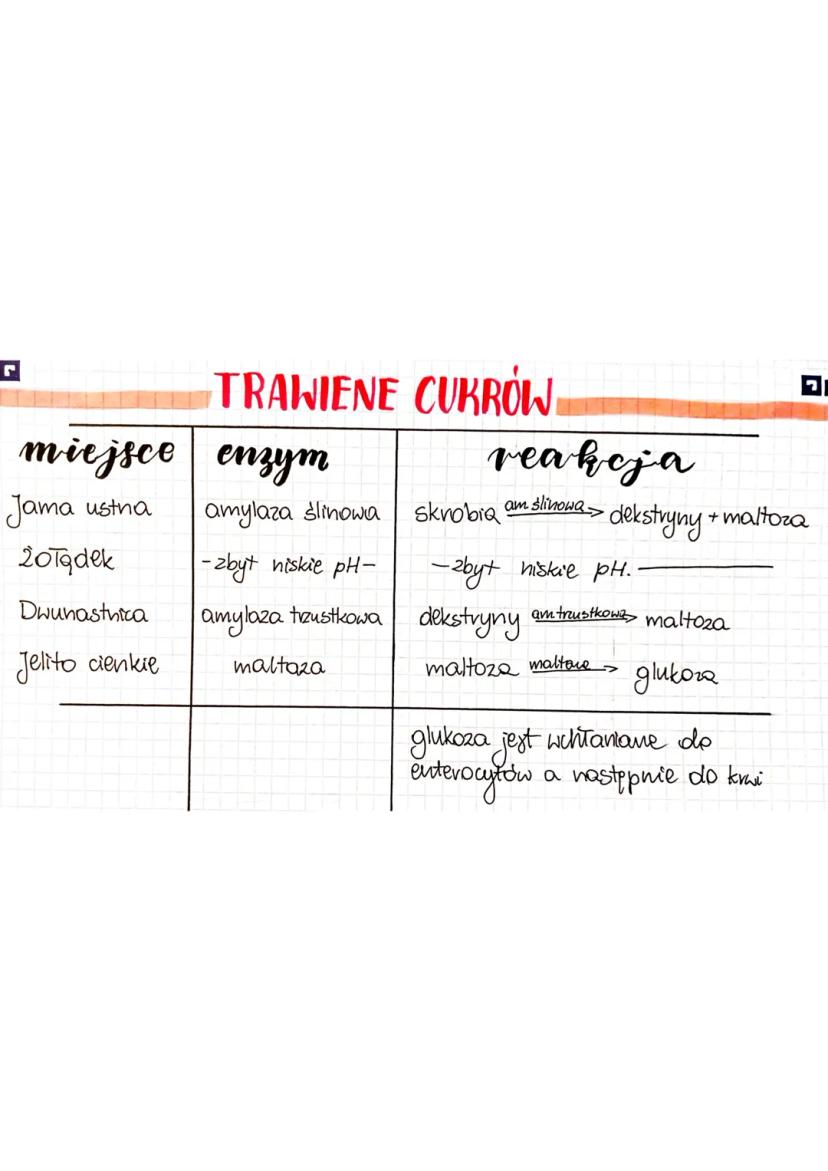 TRAWIENE CUKRÓW
miejsce enzym reakcja
Jama ustna amylaza ślinowa skrobia am ślinowa → dekstryny + maltoza
żołądek -zbyt niskie pH- -zbyt niskie pH.
Dwunastnica amylaza trzustkowa dekstryny am trzustkowa → maltoza
Jelito cienkie maltaza maltoza → glukoza
glukoza jest wchłaniane do
enterocytów a następnie do krwi